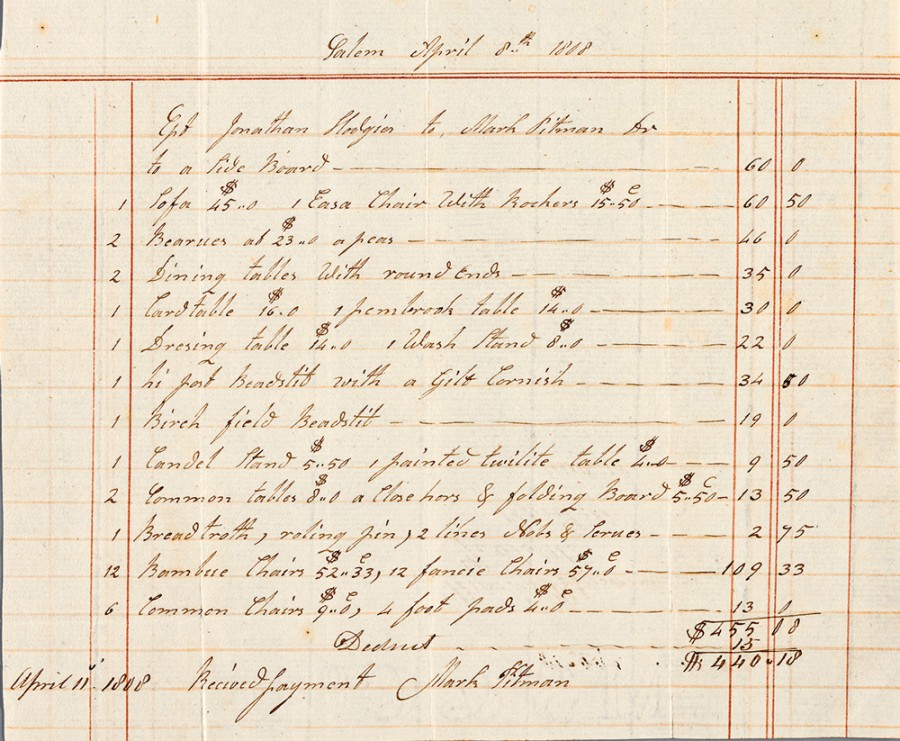 Salem April 8th 1808
Cpt Jonathan Hodgies to, Mark Pitman Dr
to a Side Board 60 0
1 Sofa $45..0 1 Easa Chair With Rockers $15..50 c 60 50
2 Bearues at $23..0 a peas 46 0
2 Dining tables With round Ends 35 0
1 Card table $16..0 1 pembrook table $14..0 30 0
1 Dresing table $14..0 1 Wash Stand $8..0 22 0
1 hi post Beadstit with a Gilt Cornish 34 50
1 Birch field Beadstit 19 0
1 Candel Stand $5..50 1 painted twilite table $4..0 9 50
2 Common tables $8..0 a Close hors & folding Board $5..50 c 13 50
1 Bread troth, roling pin, 2 lines Nobs & Scrues 2 75
12 Bambue Chairs $52..33 c, 12 fancie Chairs $57..0 c 109 33
6 Common Chairs $9..0 c, 4 foot pads $4..0 c 13 0
$455 08
Deduct 15
$440..18
April 11 1808 Recived payment Mark Pitman